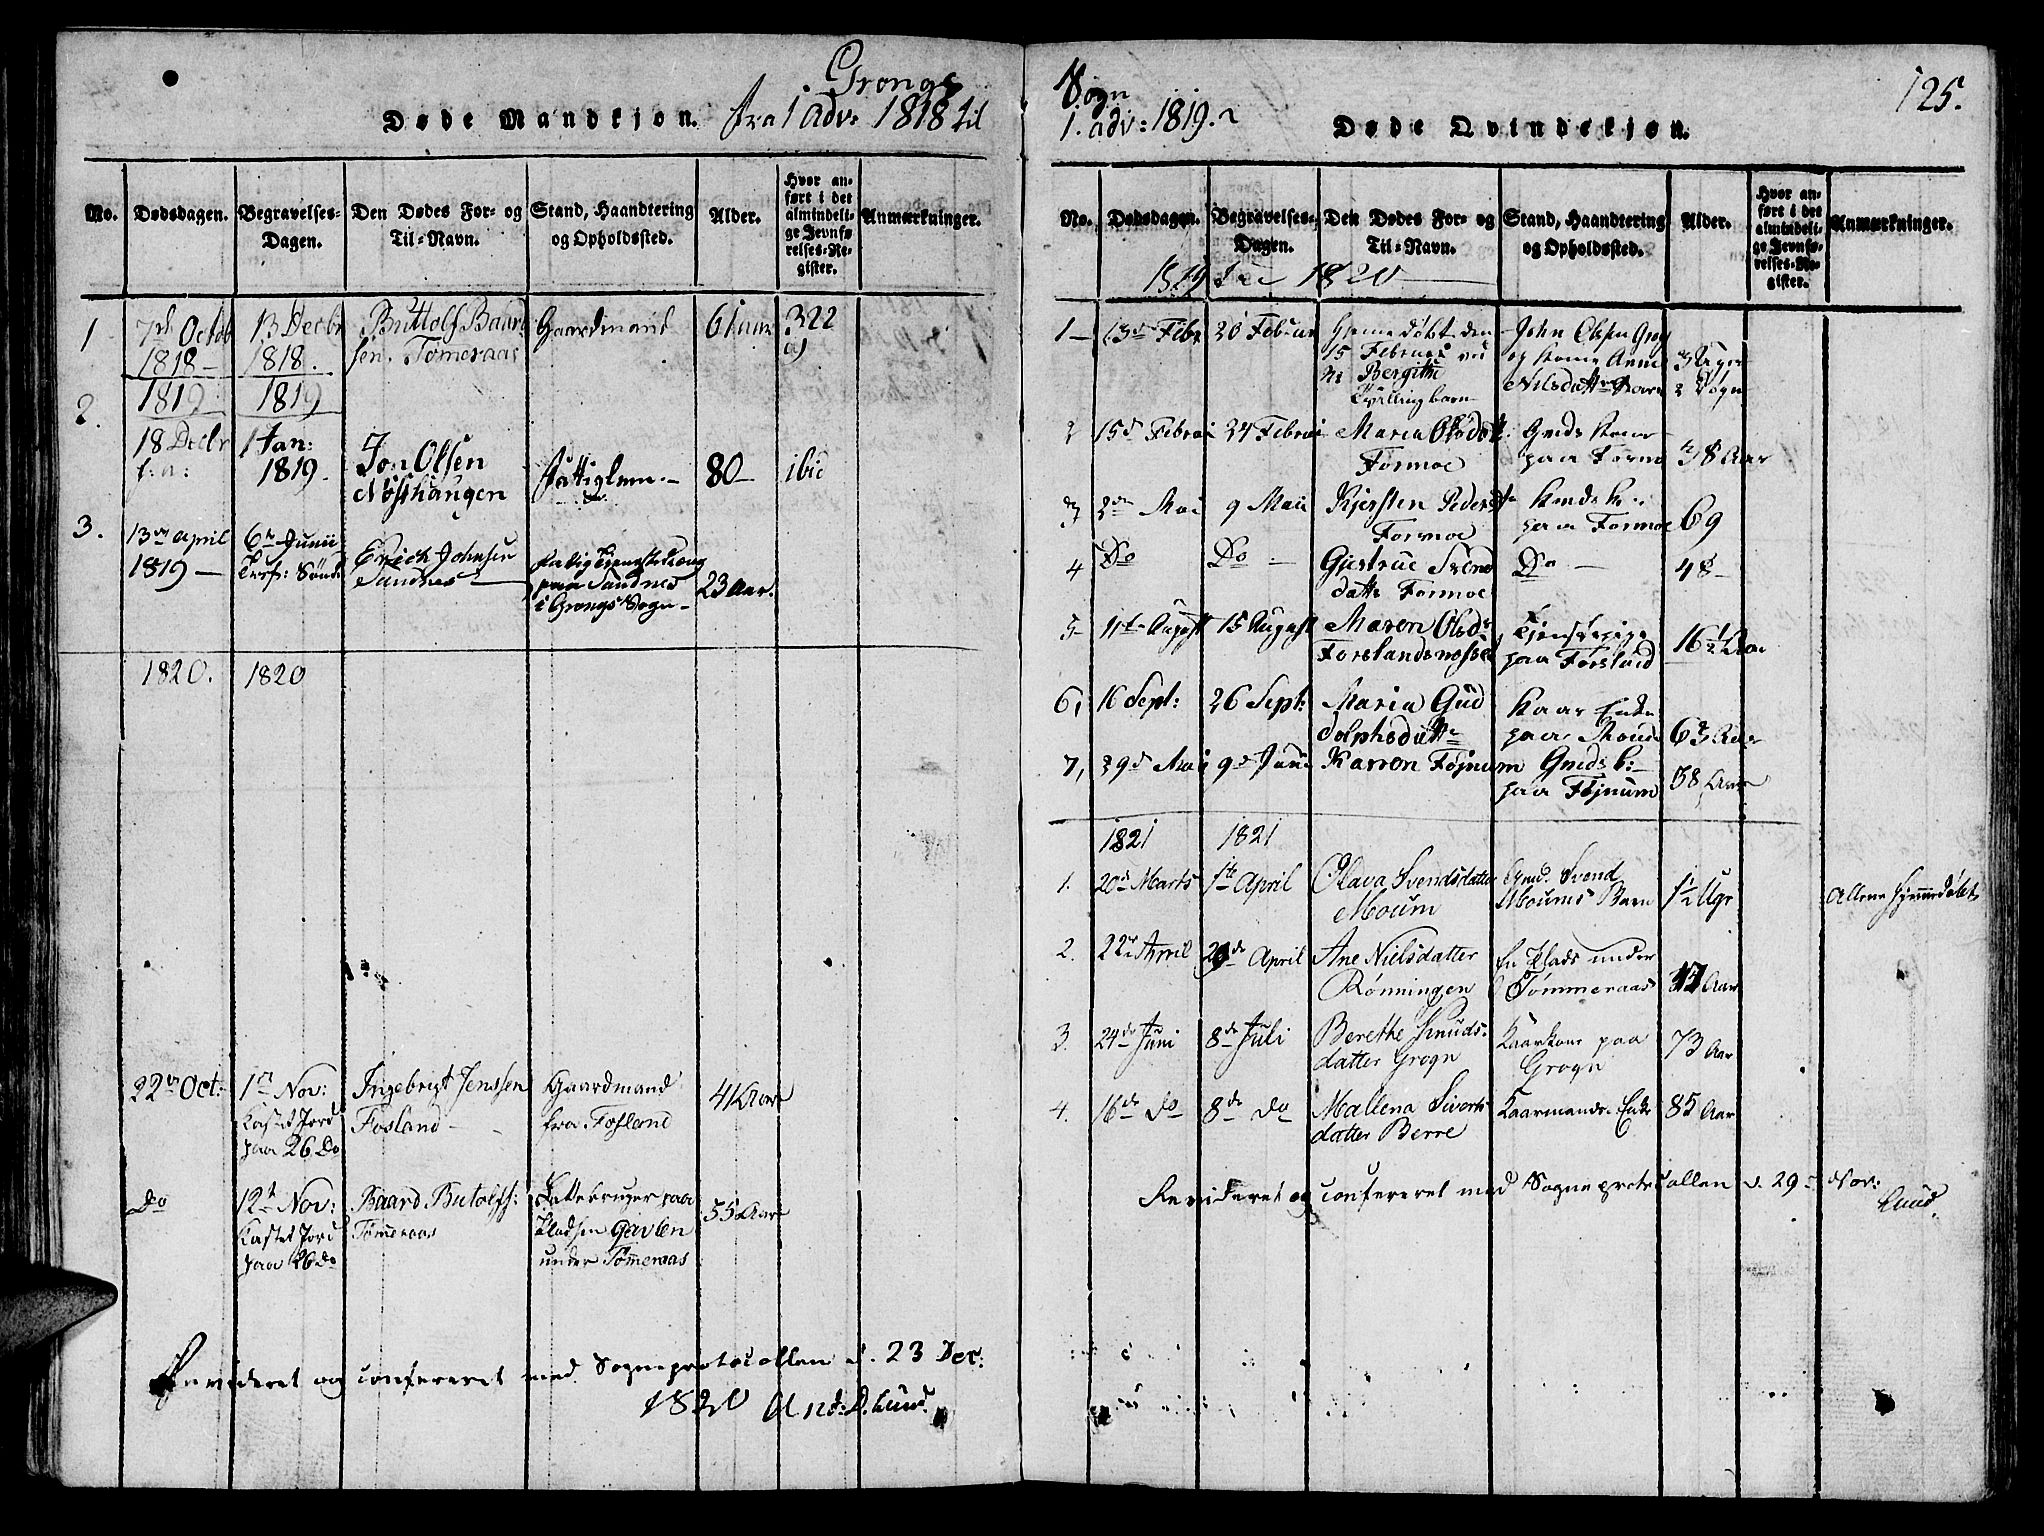 Grongs
Døde Mandkjøn. fra 1 Adv: 1818 til
No.
Dødsdagen.
Begravelses-
Dagen.
Den Dødes For- og
Til-Navn.
Stand, Haandtering
og Opholdssted.
Alder.
Hvor an-
ført i det
almindeli-
ge Jevnfø-
relses-Re-
gister.
Anmærkninger.
1
7de Octob
1818 -
13 Decbr
1818.
Buttolf Baard
sen. Tømeraas
Gaardmand
61 aar
322
a)
1819
1819
2.
18 Decbr
f: a:
1 Jan:
1819.
Jon Olsen
Nøsthaugen
Fattiglem. -
80 -
ibid
3.
13de april
1819 -
6te Junii
Erich Johnsen
Sandnes -
paa Sandnes
i Grongs Sogn -
23 Aar.
1820.
1820
22de Oct:
1ste Nov:
Kastet Jord
paa 26 Do
Ingebrigt Jenssen
Fosland -
Gaardmand
fra Fosland
41 Aar
Do
12te Nov:
Kastet Jord
paa 26 Do
Baard Butolfs:
Tømeraas
paa
Pladsen Gavlen
under Tømeraas
55 Aar
Revideret og confereret med Sogneprotocollen d. 23 Dec:
1820 And: D. Lund.
Sogn
125.
1. adv: 1819.
Døde Qvindekjøn.
No.
Dødsdagen.
Begravelses-
Dagen.
Den Dødes For- og
Til-Navn.
Stand, Haandtering
og Opholdssted.
Alder.
Hvor an-
ført i det
almindeli-
ge Jevnfø-
relses-Re-
gister.
Anmærkninger.
1819 1820
1 -
13de Febr
20 Februar
Hjemedøbt den
15 Februar ved
Bergitte
Tvillingbarn
John Olsen Grog
og Kone Anne
Nilsdatter
3 Uger
2 Døgn
2
15de Februar
24 Februar
Maria Olsdatt
Formoe
Gmds Kone
paa Formo
38 Aar
3
2den Mai
9 Maii
Kjersten Pedersd
Formoe
paa Formoe
69
4
Do
Do -
Gjertrue Svend
datter Formoe
Do -
48 -
5
11te August
15 August
Maren Olsd:
Forslandsnesset
Tjenstpige
paa Forsland
16½ Aar
6,
16 Sept:
26 Sept:
Maria Gud
dolphsdatter
Kaar Enke
paa Moum
63 Aar
7,
29de Mai
9de Junii
Karren Føjnum
Gmds k:
paa Føjnum
58 Aar
1821
1821
1.
20de Marts
1ste April
Olava Svendsdatter
Moum
Gmd. Svend
Moums Barn
1½ Uge
Allene hjemmedøbt
2.
22de April
29de April
Ane Nielsdatter
Rønningen
Plads under
Tømmeraas
Aar
3.
24de Juni
8de Juli
Berethe Knuds-
datter Grogn
Kaarkone paa
Grogn
73 Aar
4.
16de Do
8de Do
Mallena Siverts
datter Berre
Kaarmands-Enke
85 Aar
Revideret og confereret med Sogneprotocollen d. 29de Nov:
Lund.